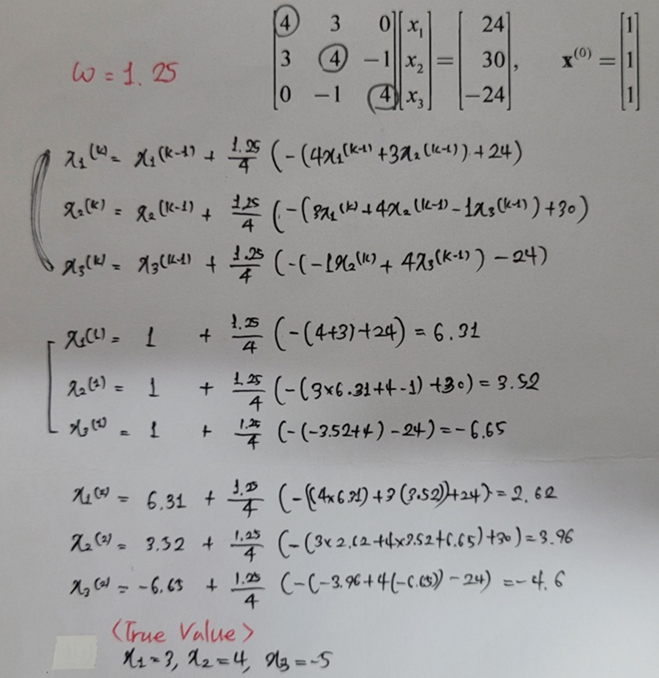 ω = 1.25
[4 3 0; 3 4 -1; 0 -1 4] [x₁; x₂; x₃] = [24; 30; -24], x⁽⁰⁾ = [1; 1; 1]
x₁⁽ᵏ⁾ = x₁⁽ᵏ⁻¹⁾ + 1.25/4 (-(4x₁⁽ᵏ⁻¹⁾ + 3x₂⁽ᵏ⁻¹⁾) + 24)
x₂⁽ᵏ⁾ = x₂⁽ᵏ⁻¹⁾ + 1.25/4 (-(3x₁⁽ᵏ⁾ + 4x₂⁽ᵏ⁻¹⁾ - 1x₃⁽ᵏ⁻¹⁾) + 30)
x₃⁽ᵏ⁾ = x₃⁽ᵏ⁻¹⁾ + 1.25/4 (-(-1x₂⁽ᵏ⁾ + 4x₃⁽ᵏ⁻¹⁾) - 24)
x₁⁽¹⁾ = 1 + 1.25/4 (-(4+3)+24) = 6.31
x₂⁽¹⁾ = 1 + 1.25/4 (-(3×6.31+4-1)+30) = 3.52
x₃⁽¹⁾ = 1 + 1.25/4 (-(-3.52+4)-24) = -6.65
x₁⁽²⁾ = 6.31 + 1.25/4 (-((4×6.31)+3(3.52))+24) = 2.62
x₂⁽²⁾ = 3.52 + 1.25/4 (-(3×2.62+4×3.52+6.65)+30) = 3.96
x₃⁽²⁾ = -6.65 + 1.25/4 (-(-3.96+4(-6.65))-24) = -4.6
<True Value>
x₁=3, x₂=4, x₃=-5